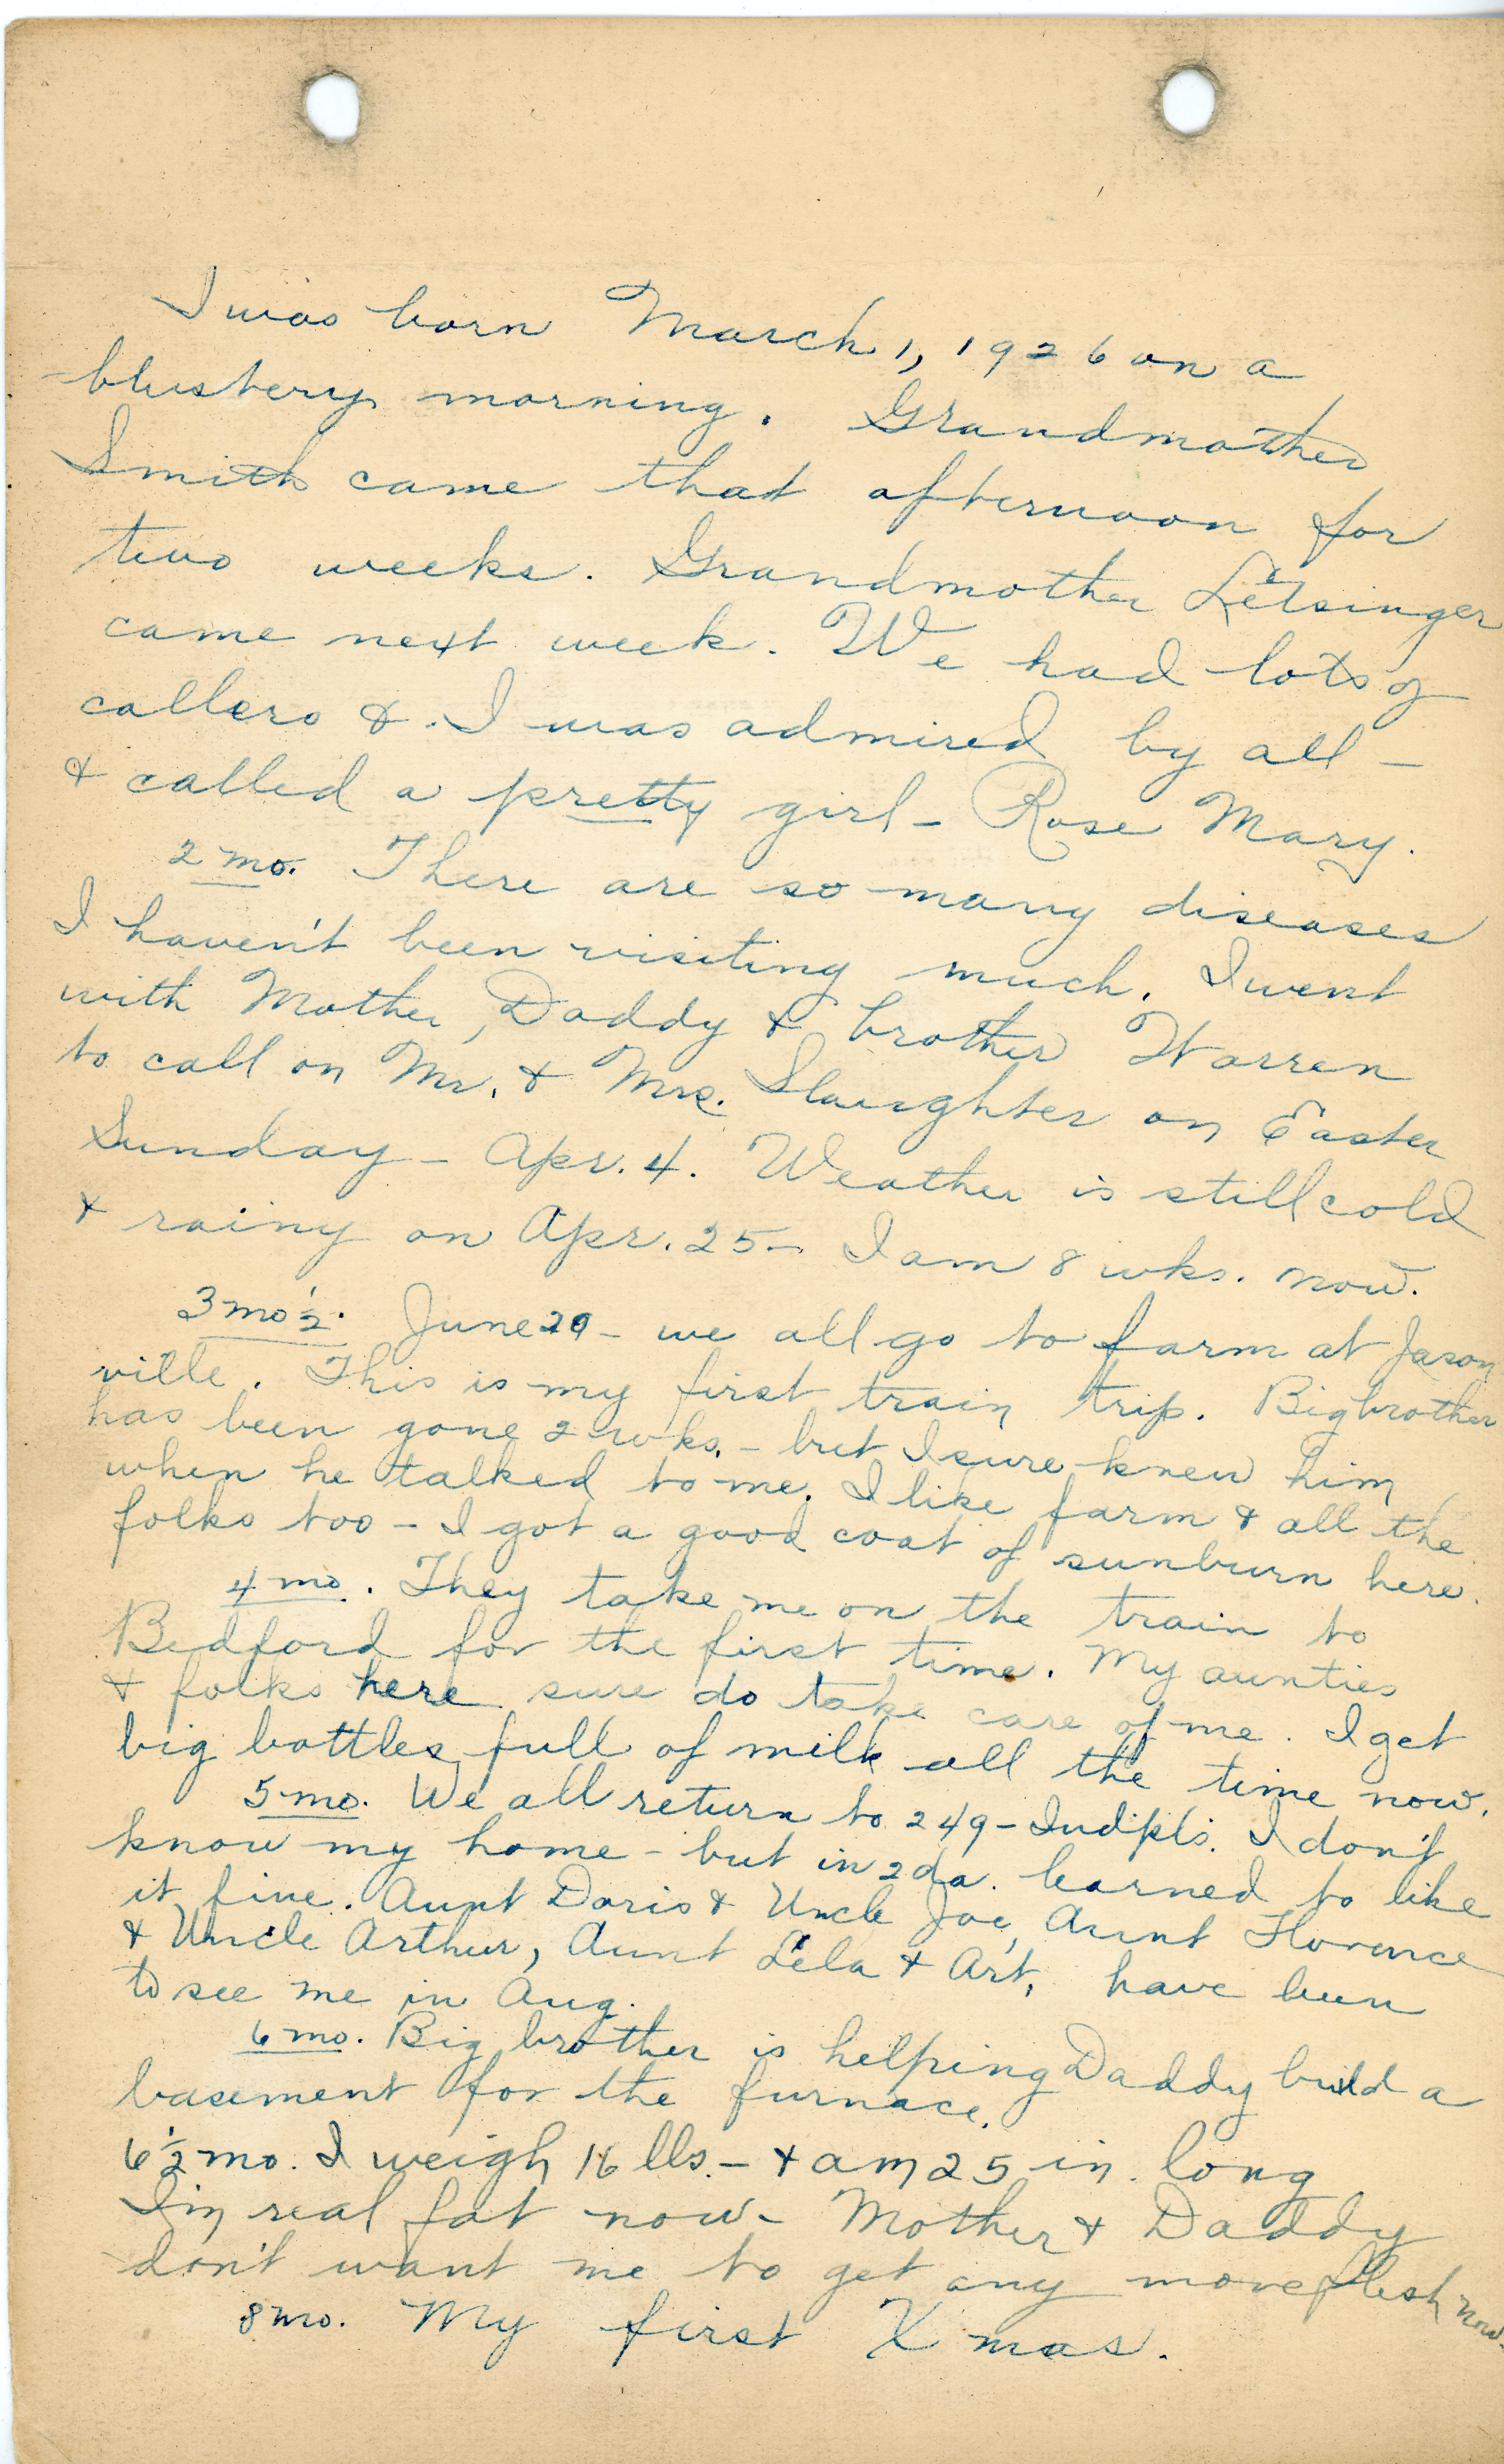 I was born March 1, 1926 on a
blustery morning. Grandmother
Smith came that afternoon for
two weeks. Grandmother Letsinger
came next week. We had lots of
callers & I was admired by all –
& called a pretty girl – Rose Mary.
2 mo. There are so many diseases
I haven't been visiting much. I went
with Mother, Daddy & brother Warren
to call on Mr. & Mrs. Slaughter on Easter
Sunday – Apr. 4. Weather is still cold
& rainy on Apr. 25 – I am 8 wks. now.
3 mo ½. June 20 – we all go to farm at Jason
ville. This is my first train trip. Big brother
has been gone 2 wks. – but I sure knew him
when he talked to me. I like farm & all the
folks too – I got a good coat of sunburn here.
4 mo. They take me on the train to
Bedford for the first time. My aunties
& folks here sure do take care of me. I get
big bottles full of milk all the time now.
5 mo. We all return to 249 – Indpls. I don't
know my home – but in 2 da. learned to like
it fine. Aunt Doris & Uncle Joe, Aunt Florence
& Uncle Arthur, Aunt Lela & Art, have been
to see me in Aug.
6 mo. Big brother is helping Daddy build a
basement for the furnace.
6½ mo. I weigh 16 lbs. – & am 25 in. long
I'm real fat now – Mother & Daddy
don't want me to get any more flesh now –
8 mo. My first Xmas.